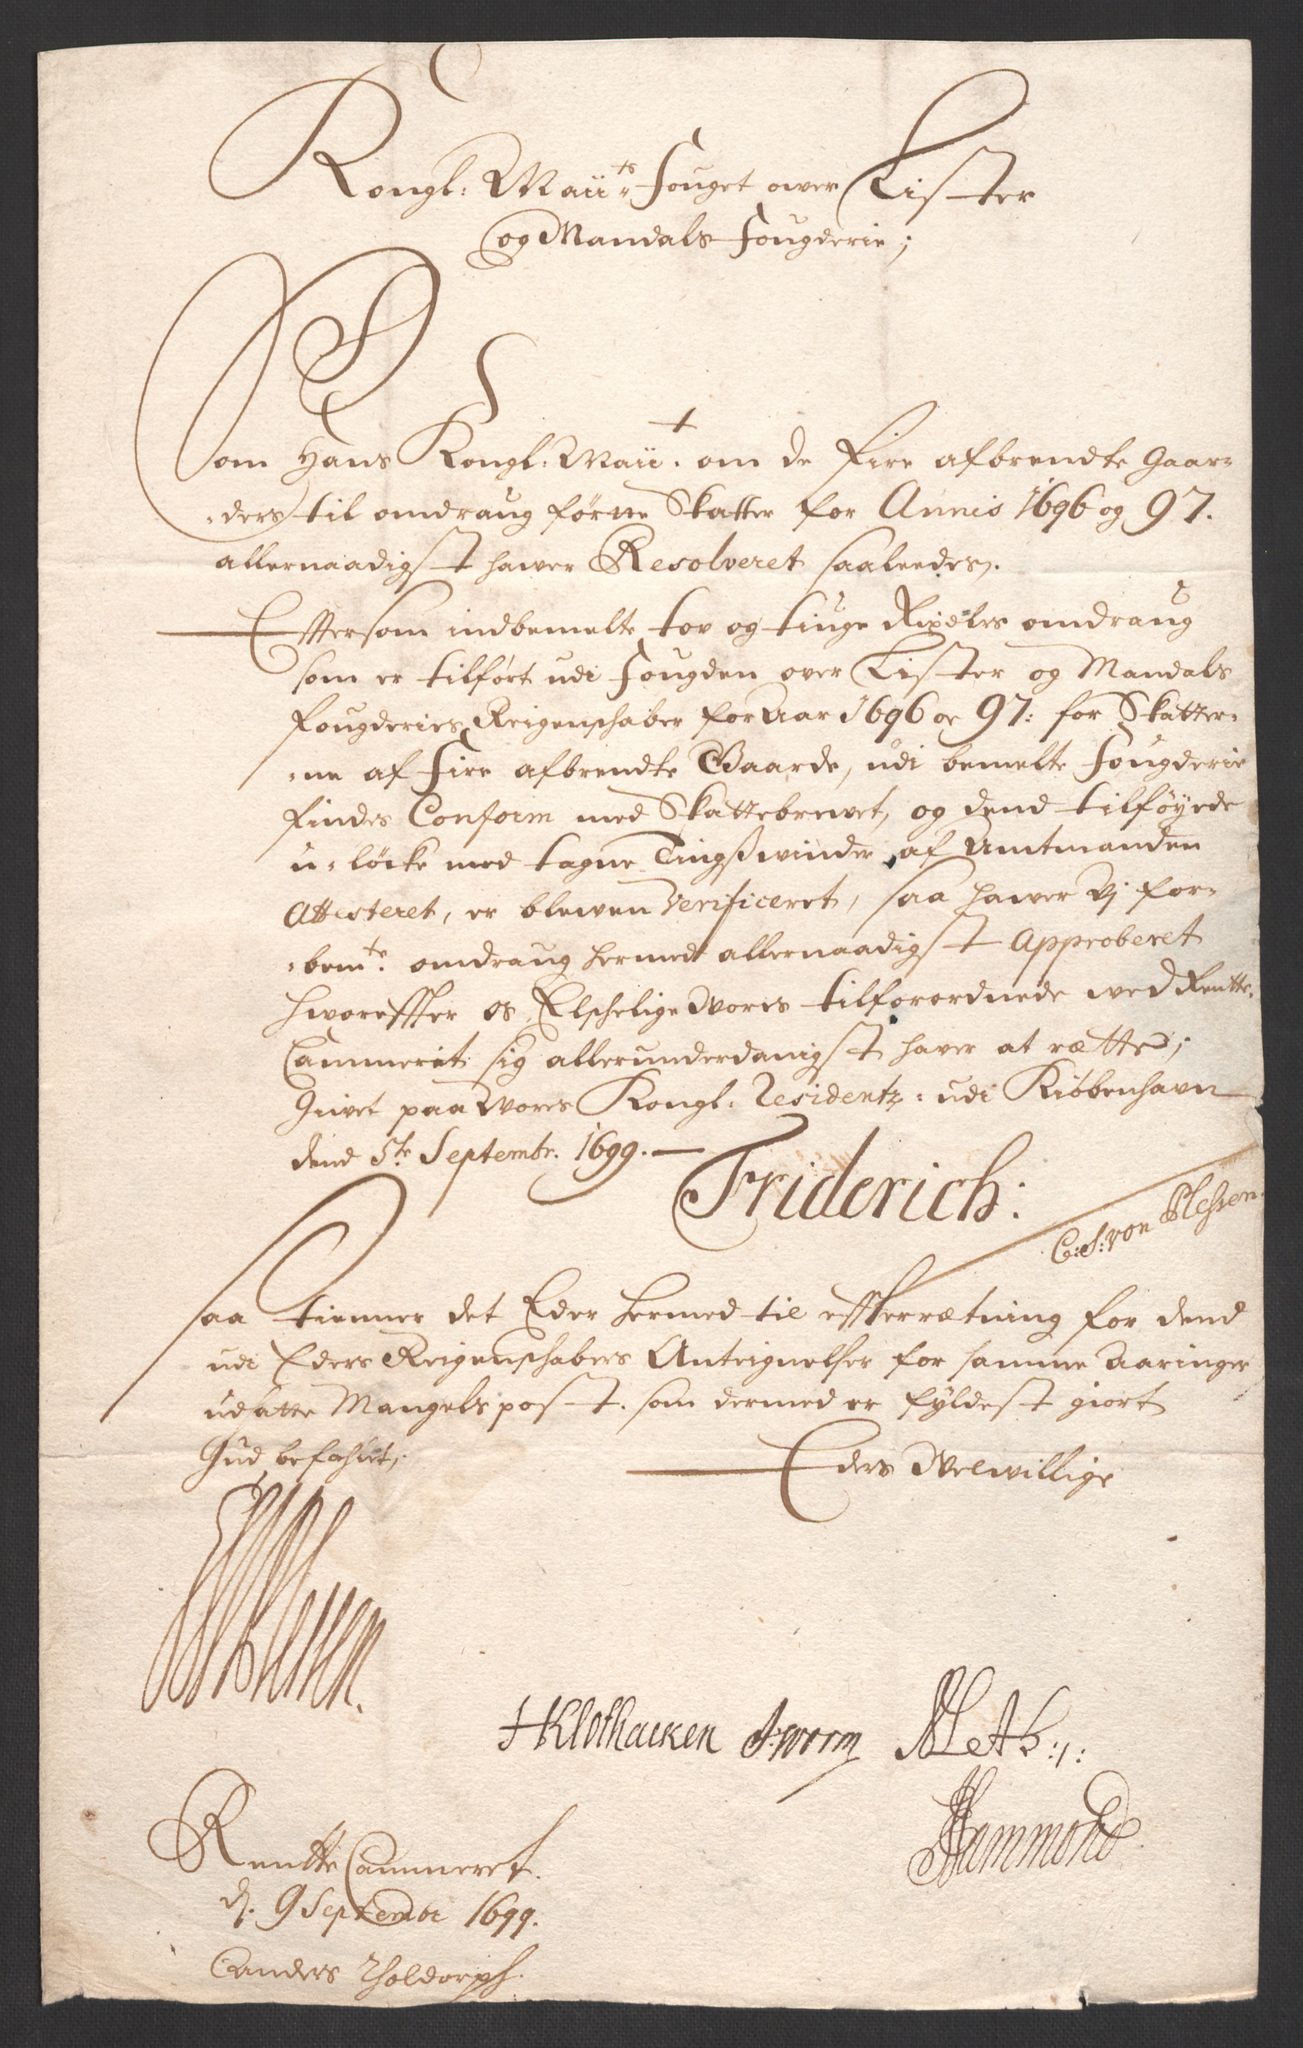 Kongl: Maii.ts Fouget ower Lister
og Mandals Fougderie;
Som Hans Kongl: Maii.t om de Fire afbrendte Gaar-
-ders til omdraug førte Skatter for Annis 1696 og 97.
allernaadigst hawer Resolveret saaleedes.
Efftersom indbemelte tov og tiuge Rixdlrs omdraug
som er tilført udi Fougden over Lister og Mandals
Fougderies Reigenschaber for Aar 1696 oc 97: for Skatter-
-ne af Fire afbrendte Gaarde, udi bemelte Fougderie
findes Conform med Skattebrevet, og dend tilføyede
u-løcke med tagne Tingsswinder af Amtmanden
Attesteret, er blewen Verificeret, saa hawer Vj for-
-bem.te omdraug hermed allernaadigst Approberet
hworeffter os Elschelige Wores tilforordnede wed Rentte-
Cammerit sig allerunderdanigst haver at rætte;
Giivet paa Wores Kongl: Residentz: udi Kiøbenhavn
dend 5te Septembr. 1699.
Friderich:
C: S: von Plessen.
Saa tienner det Eder hermed til effterrætning for dend
udi Eders Reigenschabers Anteignelser for samme Aaringer
udsatte Mangels post. som dermed er fyldest giort
Gud befahlet;
Eders Welwillige
CS Plessen.
HKlothacken J: Worm Meth:
Hammond
Rentte Cammeret.
d. 9 Septembr 1699.
Anders Tholdorph.